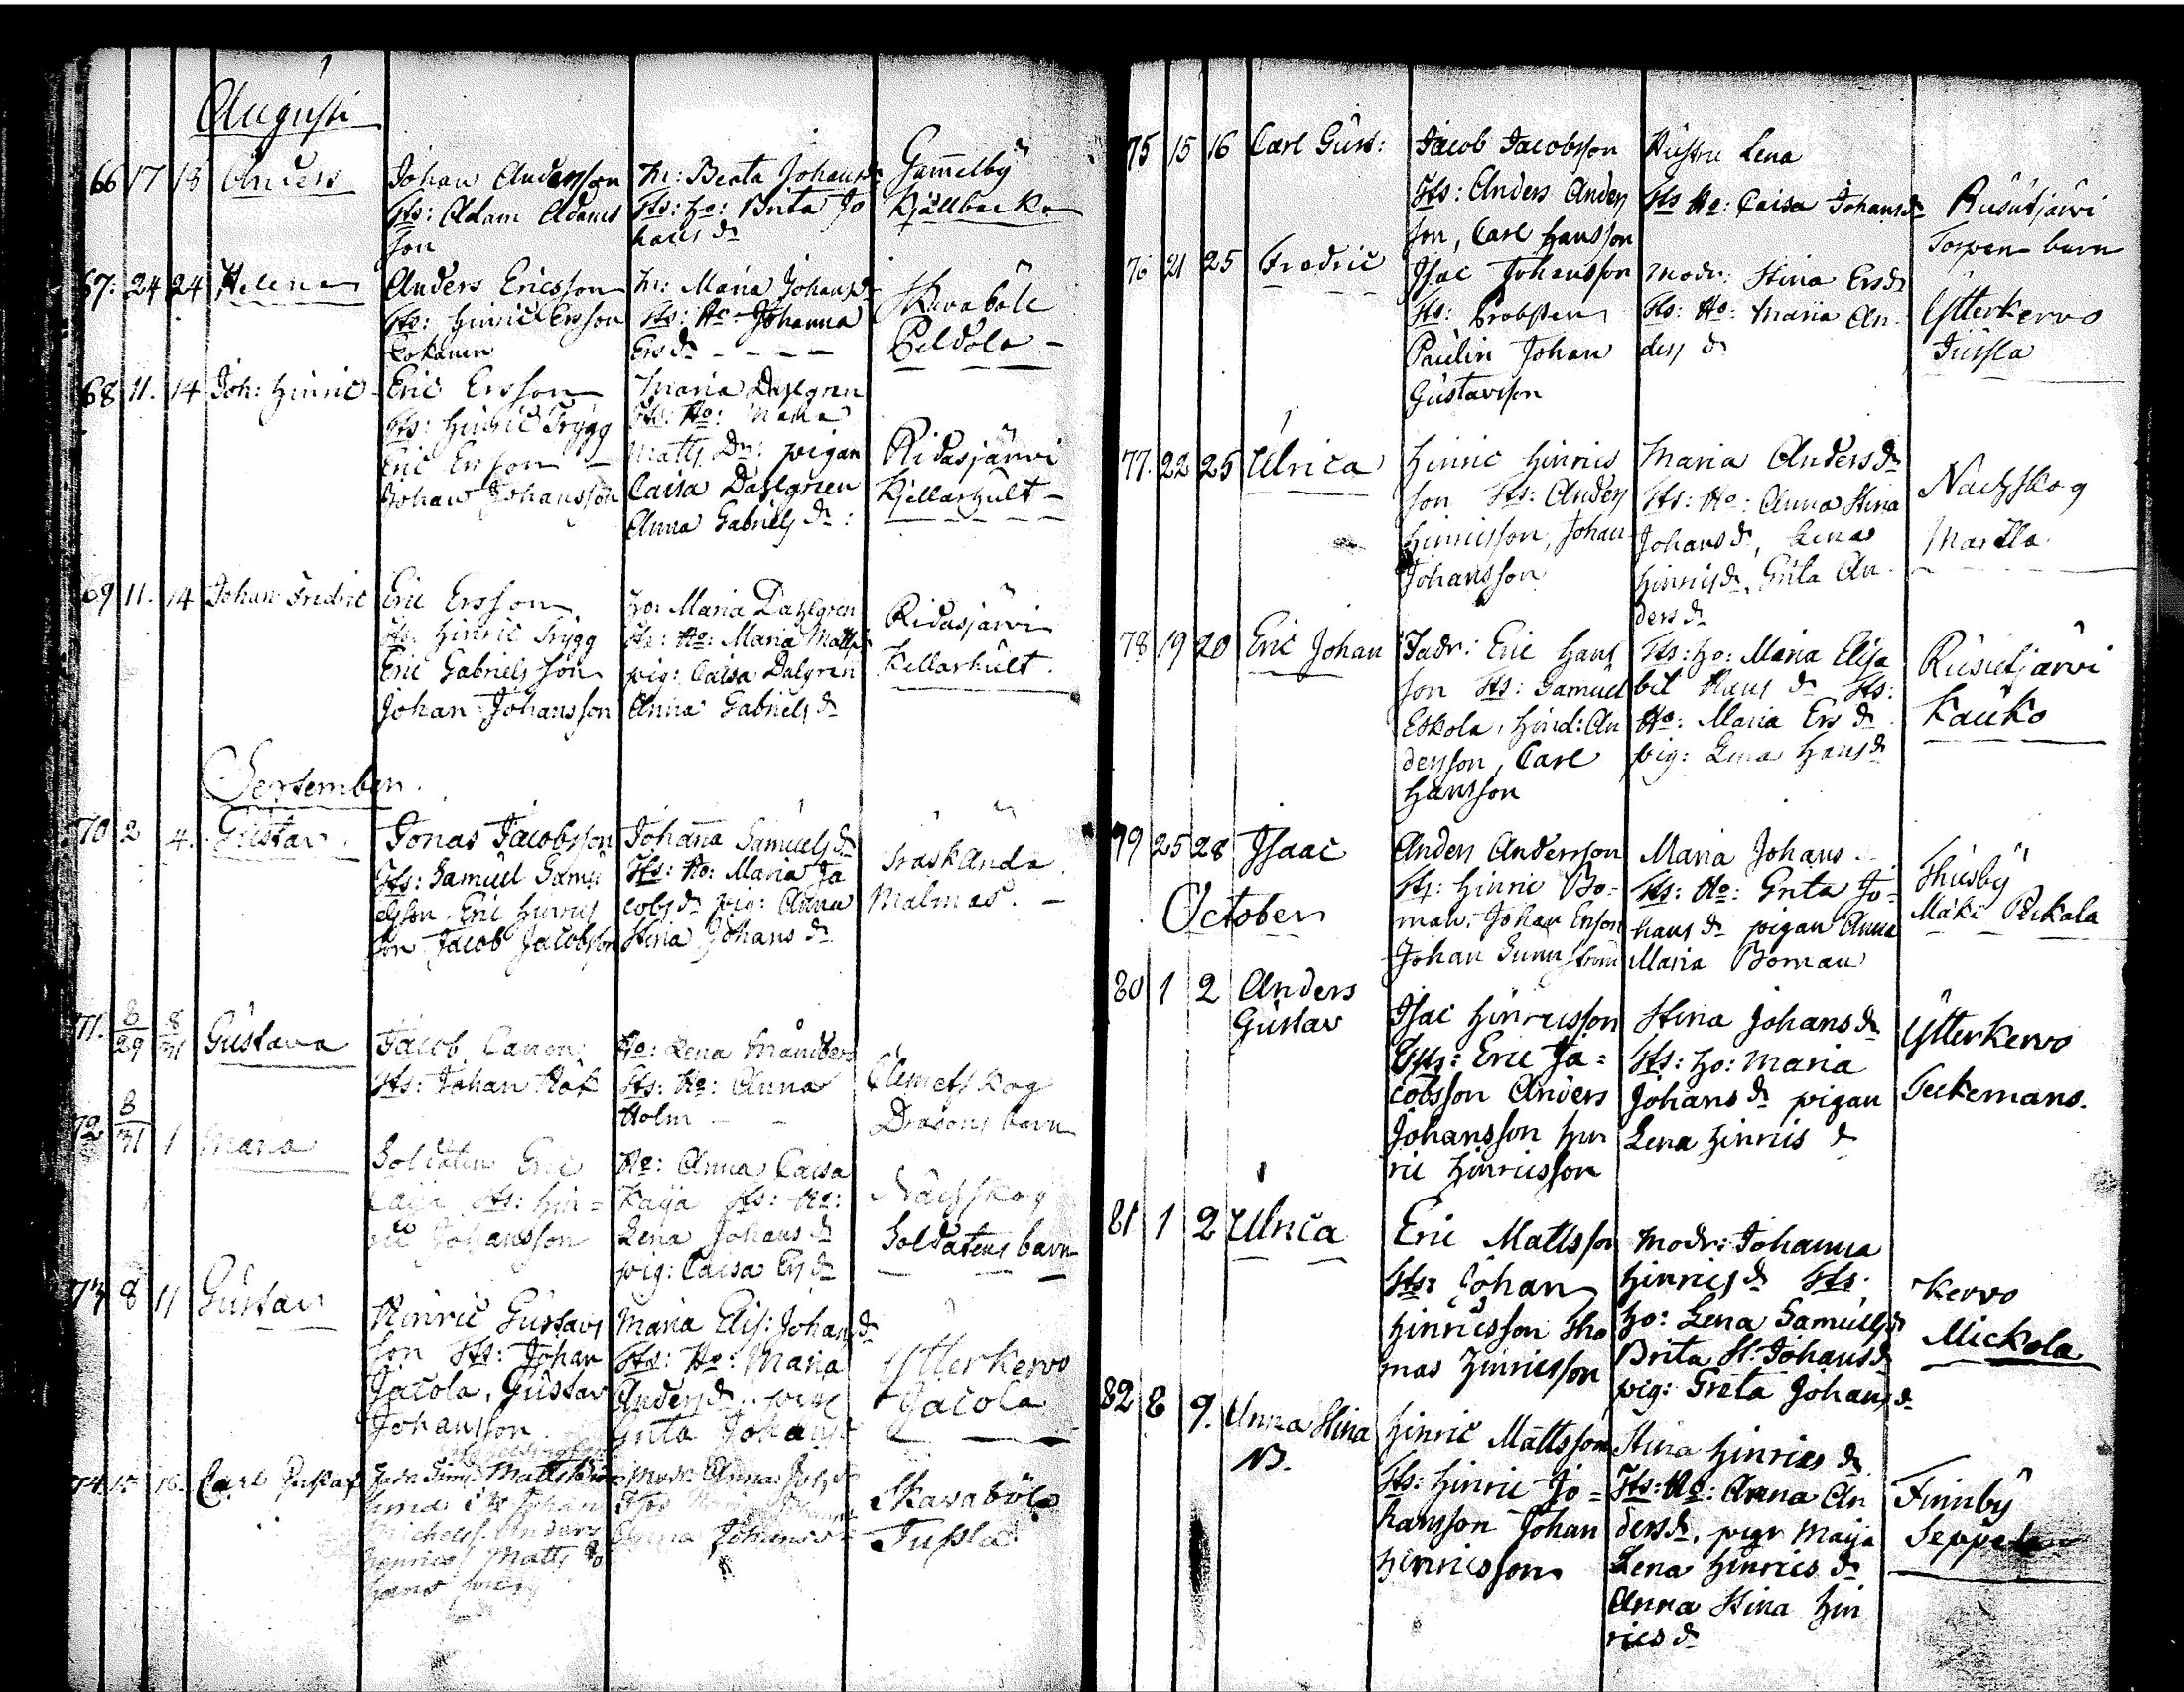 Augusti
66 17 18 Anders
Johan Andersson
Fts: Adam Adams
son
M: Beata Johansdr
Fts: Ho: Brita Jo
hans dr
Gammelby
Kjällbacka
67: 24 24 Helena
Anders Ericsson
Fts: Hinric Ersson
M: Maria Johansdr
Fts: Ho: Johanna
Ers dr
Skavaböle
Peldola
68 11. 14 Joh: Hinric
Eric Ersson
Fts: Hinric Trygg
Eric Ersson
Johan Johansson
Maria Dahlgren
Fts: Ho: Maria
Matts Dr: pigan
Caisa Dahlgrien
Anna Gabriels dr:
Ridasjärvi
Kjellarhult
69 11. 14 Johan Fredric
Eric Ersson
Fts: Hinric Trygg
Eric Gabriels son
Johan Johansson
Ho: Maria Dahlgren
Fts: Ho: Maria Matts
pig: Caisa Dalgren
Anna Gabriels dr
Ridasjärvi
Kellarhult.
September.
70 2 4. Gustav.
Jonas Jacobsson
Fts: Samuel Samu
elsson, Eric Hinrics
son Jacob Jacobsson
Johana Samuels dr
Fts: Ho: Maria Ja
cobs dr pig: Anna
Stina Johans dr
Träskända
Malmas.
71. 8/29 8/31 Gustava
Jacob Canon:
Fts: Johan Hök
Ho: Lena
Fts: Ho: Anna
Holm
Clemetskog
Dragons barn
72 8/31 1 Maria
Soldaten Eric
Caija Fts: Hin=
ric Johansson
Ho: Anna Caisa
Kaija Fts: Ho:
Lena Johans dr
pig: Caisa Ers dr
Nachskog
Soldatens barn
73 8 11 Gustav
Hinric Gustavs
son Fts: Johan
Jacola, Gustav
Johansson
Maria Elis: Johans dr
Fts: Ho: Maria
Anders dr. pig
Greta Johans
Ytterkervo
Jacola
74 15 16. Carl Gustaf
Modr: Anna Joh dr
Anna Johans
Skavaböle
Tusla
75 15 16 Carl Gust:
Jacob Jacobsson
Fts: Anders Anders
son, Carl Hansson
Hustru Lena
Fts Ho: Caisa Johansdr
Rusutjärvi
Torpare barn
76 21 25 Fredric
Isac Johansson
Fts: Probsten
Paulin Johan
Gustavsson
Modr: Stina Ersdr
Fts: Ho: Maria An
ders dr
Ytterkervo
Jussla
77. 22 25 Ulrica
Hinric Hinrics
son Fts: Anders
Hinricsson, Johan
Johansson
Maria Anders dr
Fts: Ho: Anna Stina
Johans dr, Lena
Hinrics dr, Greta An
ders dr
Nachskog
Martila
78 19 20 Eric Johan
Fadr: Eric Hans
son Fts: Samuel
Eskola, Hind: An
dersson, Carl
Hansson
Fts: Ho: Maria Elisa
bet Hans dr Fts:
Ho: Maria Ers dr
pig: Lena Hans dr
Rusutjärvi
Kauko
79 25 28 Isaac
Anders Andersson
Fts: Hinric Bo=
man, Johan Ersson
Johan Sunnström
Maria Johans
Fts: Ho: Greta Jo=
hans dr pigan Anna
Maria Boman
Thusby
Mäki Pekala
October
80 1 2 Anders
Gustav
Isac Hinricsson
Fts: Eric Ja=
cobsson Anders
Johansson Hin
ric Hinricsson
Stina Johans dr
Fts: Ho: Maria
Johans dr pigan
Lena Hinrics dr
Ytterkervo
Teckemans.
81 1 2 Ulrica
Eric Mattsson
Fts: Johan
Hinricsson Tho
mas Hinricsson
Modr: Johanna
Hinrics dr Fts:
Ho: Lena Samuels dr
Brita St: Johans dr
pig: Greta Johans dr
Kervo
Mickola
82 8 9. Anna Stina
N.
Hinric Mattsson
Fts: Hinric Jo=
hansson Johan
Hinricsson
Stina Hinrics dr
Fts: Ho: Anna An
ders dr, pigr Maija
Lena Hinrics dr
Anna Stina Hin
rics dr
Finnby
Seppelä